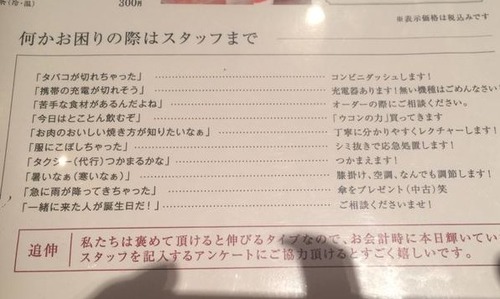 茶(冷・温) 300円
※表示価格は税込みです
何かお困りの際はスタッフまで
「タバコが切れちゃった」 コンビニダッシュします!
「携帯の充電が切れそう」 充電器あります!無い機種はごめんなさい
「苦手な食材があるんだよね」 オーダーの際にご相談ください。
「今日はとことん飲むぞ」 「ウコンの力」買ってきます
「お肉のおいしい焼き方が知りたいなぁ」 丁寧に分かりやすくレクチャーします!
「服にこぼしちゃった」 シミ抜きで応急処置します!
「タクシー(代行)つかまるかな」 つかまえます!
「暑いなぁ(寒いなぁ)」 膝掛け、空調、なんでも調節します!
「急に雨が降ってきちゃった」 傘をプレゼント(中古)笑
「一緒に来た人が誕生日だ!」 ご相談くださいませ!
追伸 私たちは褒めて頂けると伸びるタイプなので、お会計時に本日輝いてい
スタッフを記入するアンケートにご協力頂けるとすごく嬉しいです。